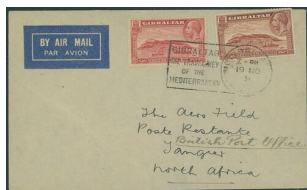 BY AIR MAIL
PAR AVION
GIBRALTAR
GIBRALTAR
GIBRALTAR
THE TRAVEL KEY
OF THE
MEDITERRANEAN
19 NO
31
The Aero Field
Poste Restante
British Post Office
Tangier
North Africa